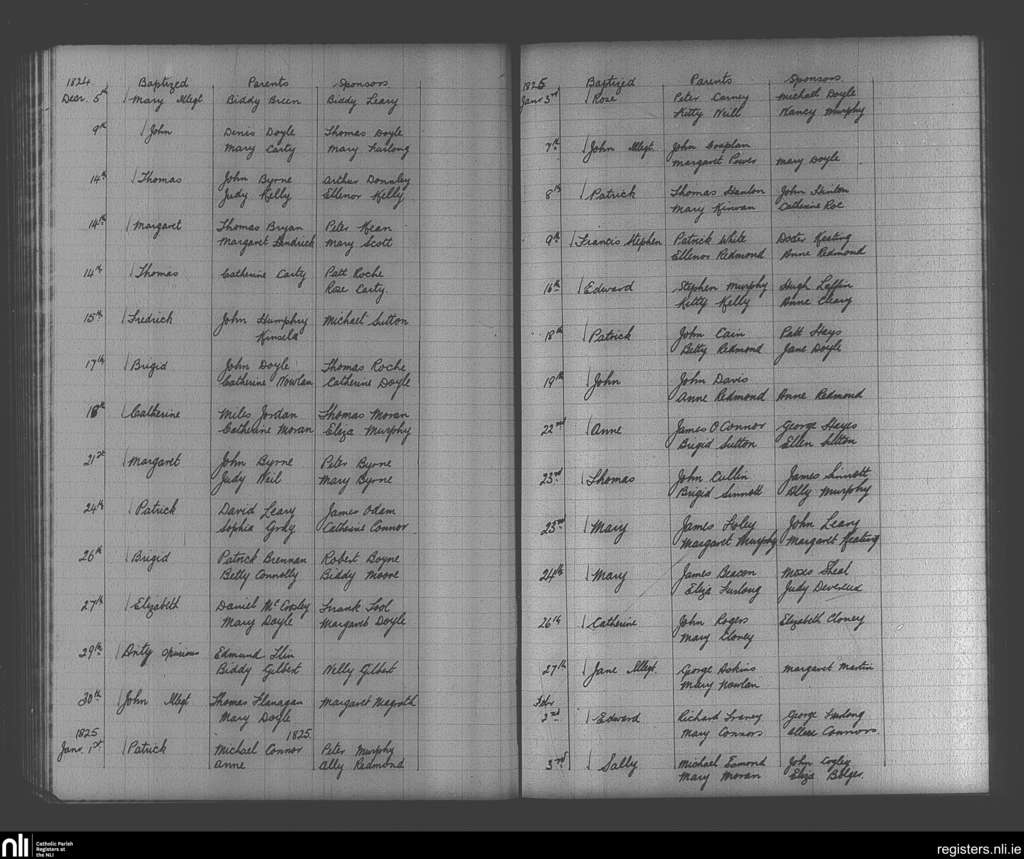 1824 Baptized Parents Sponsors
Decr. 5th Mary Illegt Biddy Breen Biddy Leary
9th John Denis Doyle Thomas Doyle
Mary Carty Mary Furlong
14th Thomas John Byrne Arthur Donnley
Judy Kelly Ellenor Kelly
14th Margaret Thomas Bryan Peter Kean
Margaret Kendrick Mary Scott
14th Thomas Catherine Carty Patt Roche
Rose Carty
15th Fredrick John Humphry Michael Sutton
Kinsela
17th Brigid John Doyle Thomas Roche
Catherine Nowlan Catherine Doyle
18th Catherine Miles Jordan Thomas Moran
Catherine Moran Eliza Murphy
21st Margaret John Byrne Peter Byrne
Judy Neil Mary Byrne
24th Patrick David Leary James Odam
Sophia Catherine Connor
26th Brigid Patrick Brennan Robert Boyne
Betty Connolly Biddy Moore
27th Elizabeth Daniel Frank
Mary Doyle Margaret Doyle
29th spurious Edmund
Biddy Gilbert Nelly Gilbert
30th John Illegt Thomas Flanagan Margaret Magrath
Mary Doyle
1825 1825
Janr. 1st Patrick Michael Connor Peter Murphy
Anne Ally Redmond
1825 Baptized Parents Sponsors
Janr 3rd Rose Peter Carney Michael Doyle
Kitty Neill Nancy Murphy
7th John Illegt. John
Margaret Power Mary Doyle
8th Patrick Thomas Hanlon John Hanlon
Mary Kirwan Catherine Roe
9th Francis Stephen Patrick White Doctr Keating
Ellenor Redmond Anne Redmond
16th Edward Stephen Murphy Hugh Laffin
Kitty Kelly Anne Cleary
18th Patrick John Cain Patt Hays
Betty Redmond Jane Doyle
19th John John Davis
Anne Redmond Anne Redmond
22nd Anne James O'Connor George Hayes
Brigid Sutton Ellen Sutton
23rd Thomas John Cullin James Sinnott
Brigid Sinnott Ally Murphy
23rd Mary James Foley John Leary
Margaret Murphy Margaret Keating
24th Mary James Beacon Moses Sheal
Eliza Furlong Judy Devereux
26th Catherine John Rogers Elizabeth Cloney
Mary Cloney
27th Jane Illegt. George Askins Margaret Martin
Mary Nowlan
Febr
2nd Edward Richard George Furlong
Mary Connors Connors
3rd Sally Michael Esmond John Cogley
Mary Moran Eliza Bolger
nli Catholic Parish
Registers at
the NLI
registers.nli.ie